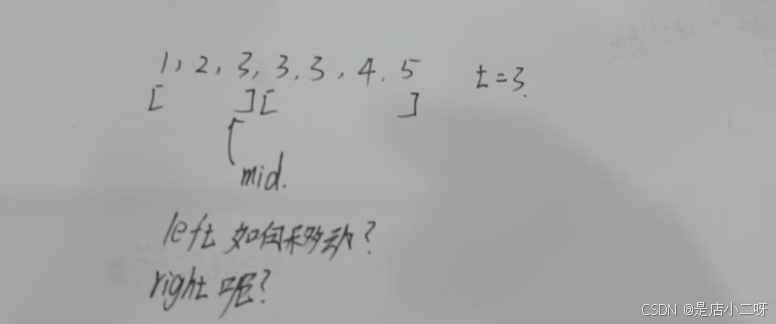 1, 2, 3, 3, 3, 4, 5 t=3.
[ ] [ ]
mid.
left 如何移动?
right 呢?
CSDN @是店小二呀